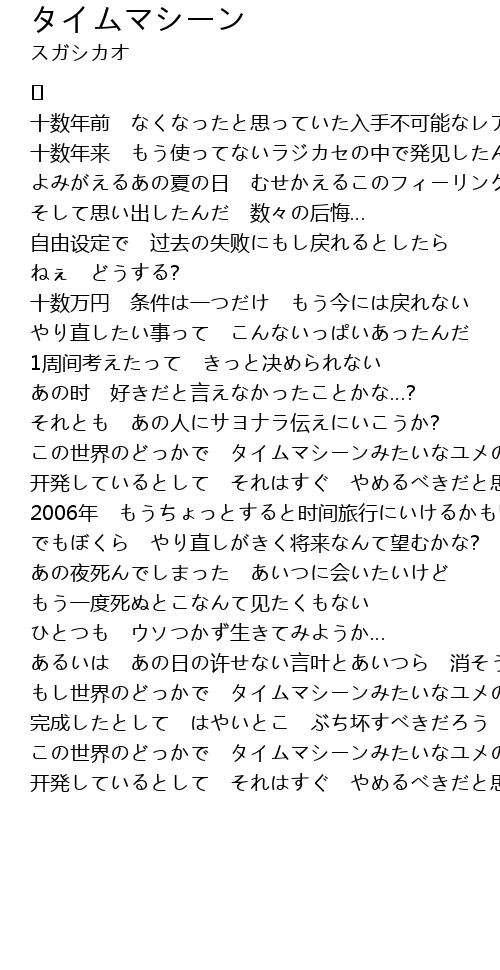 タイムマシーン
スガシカオ
十数年前　なくなったと思っていた入手不可能なレア
十数年来　もう使ってないラジカセの中で発见したん
よみがえるあの夏の日　むせかえるこのフィーリング
そして思い出したんだ　数々の后悔...
自由设定で　过去の失败にもし戻れるとしたら
ねぇ　どうする?
十数万円　条件は一つだけ　もう今には戻れない
やり直したい事って　こんないっぱいあったんだ
1周间考えたって　きっと决められない
あの时　好きだと言えなかったことかな...?
それとも　あの人にサヨナラ伝えにいこうか?
この世界のどっかで　タイムマシーンみたいなユメの
开発しているとして　それはすぐ　やめるべきだと思
2006年　もうちょっとすると时间旅行にいけるかも
でもぼくら　やり直しがきく将来なんて望むかな?
あの夜死んでしまった　あいつに会いたいけど
もう一度死ぬとこなんて见たくもない
ひとつも　ウソつかず生きてみようか...
あるいは　あの日の许せない言叶とあいつら　消そう
もし世界のどっかで　タイムマシーンみたいなユメの
完成したとして　はやいとこ　ぶち坏すべきだろう
この世界のどっかで　タイムマシーンみたいなユメの
开発しているとして　それはすぐ　やめるべきだと思